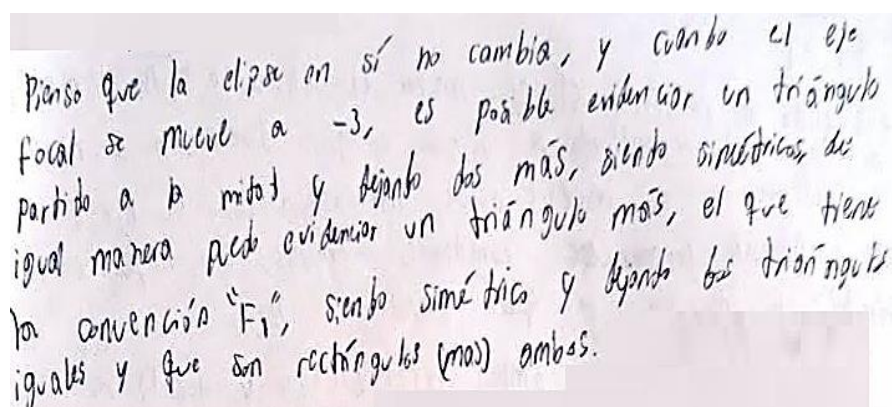 Pienso que la elipse en sí no cambia, y cuando el eje
focal se mueve a -3, es posible evidenciar un triángulo
partido a la mitad y dejando dos más, siendo simétricos, de
igual manera puedo evidenciar un triángulo más, el que tiene
la convención "F₁", siendo simétrico y dejando dos triángulos
iguales y que son rectángulos (mas) ambos.